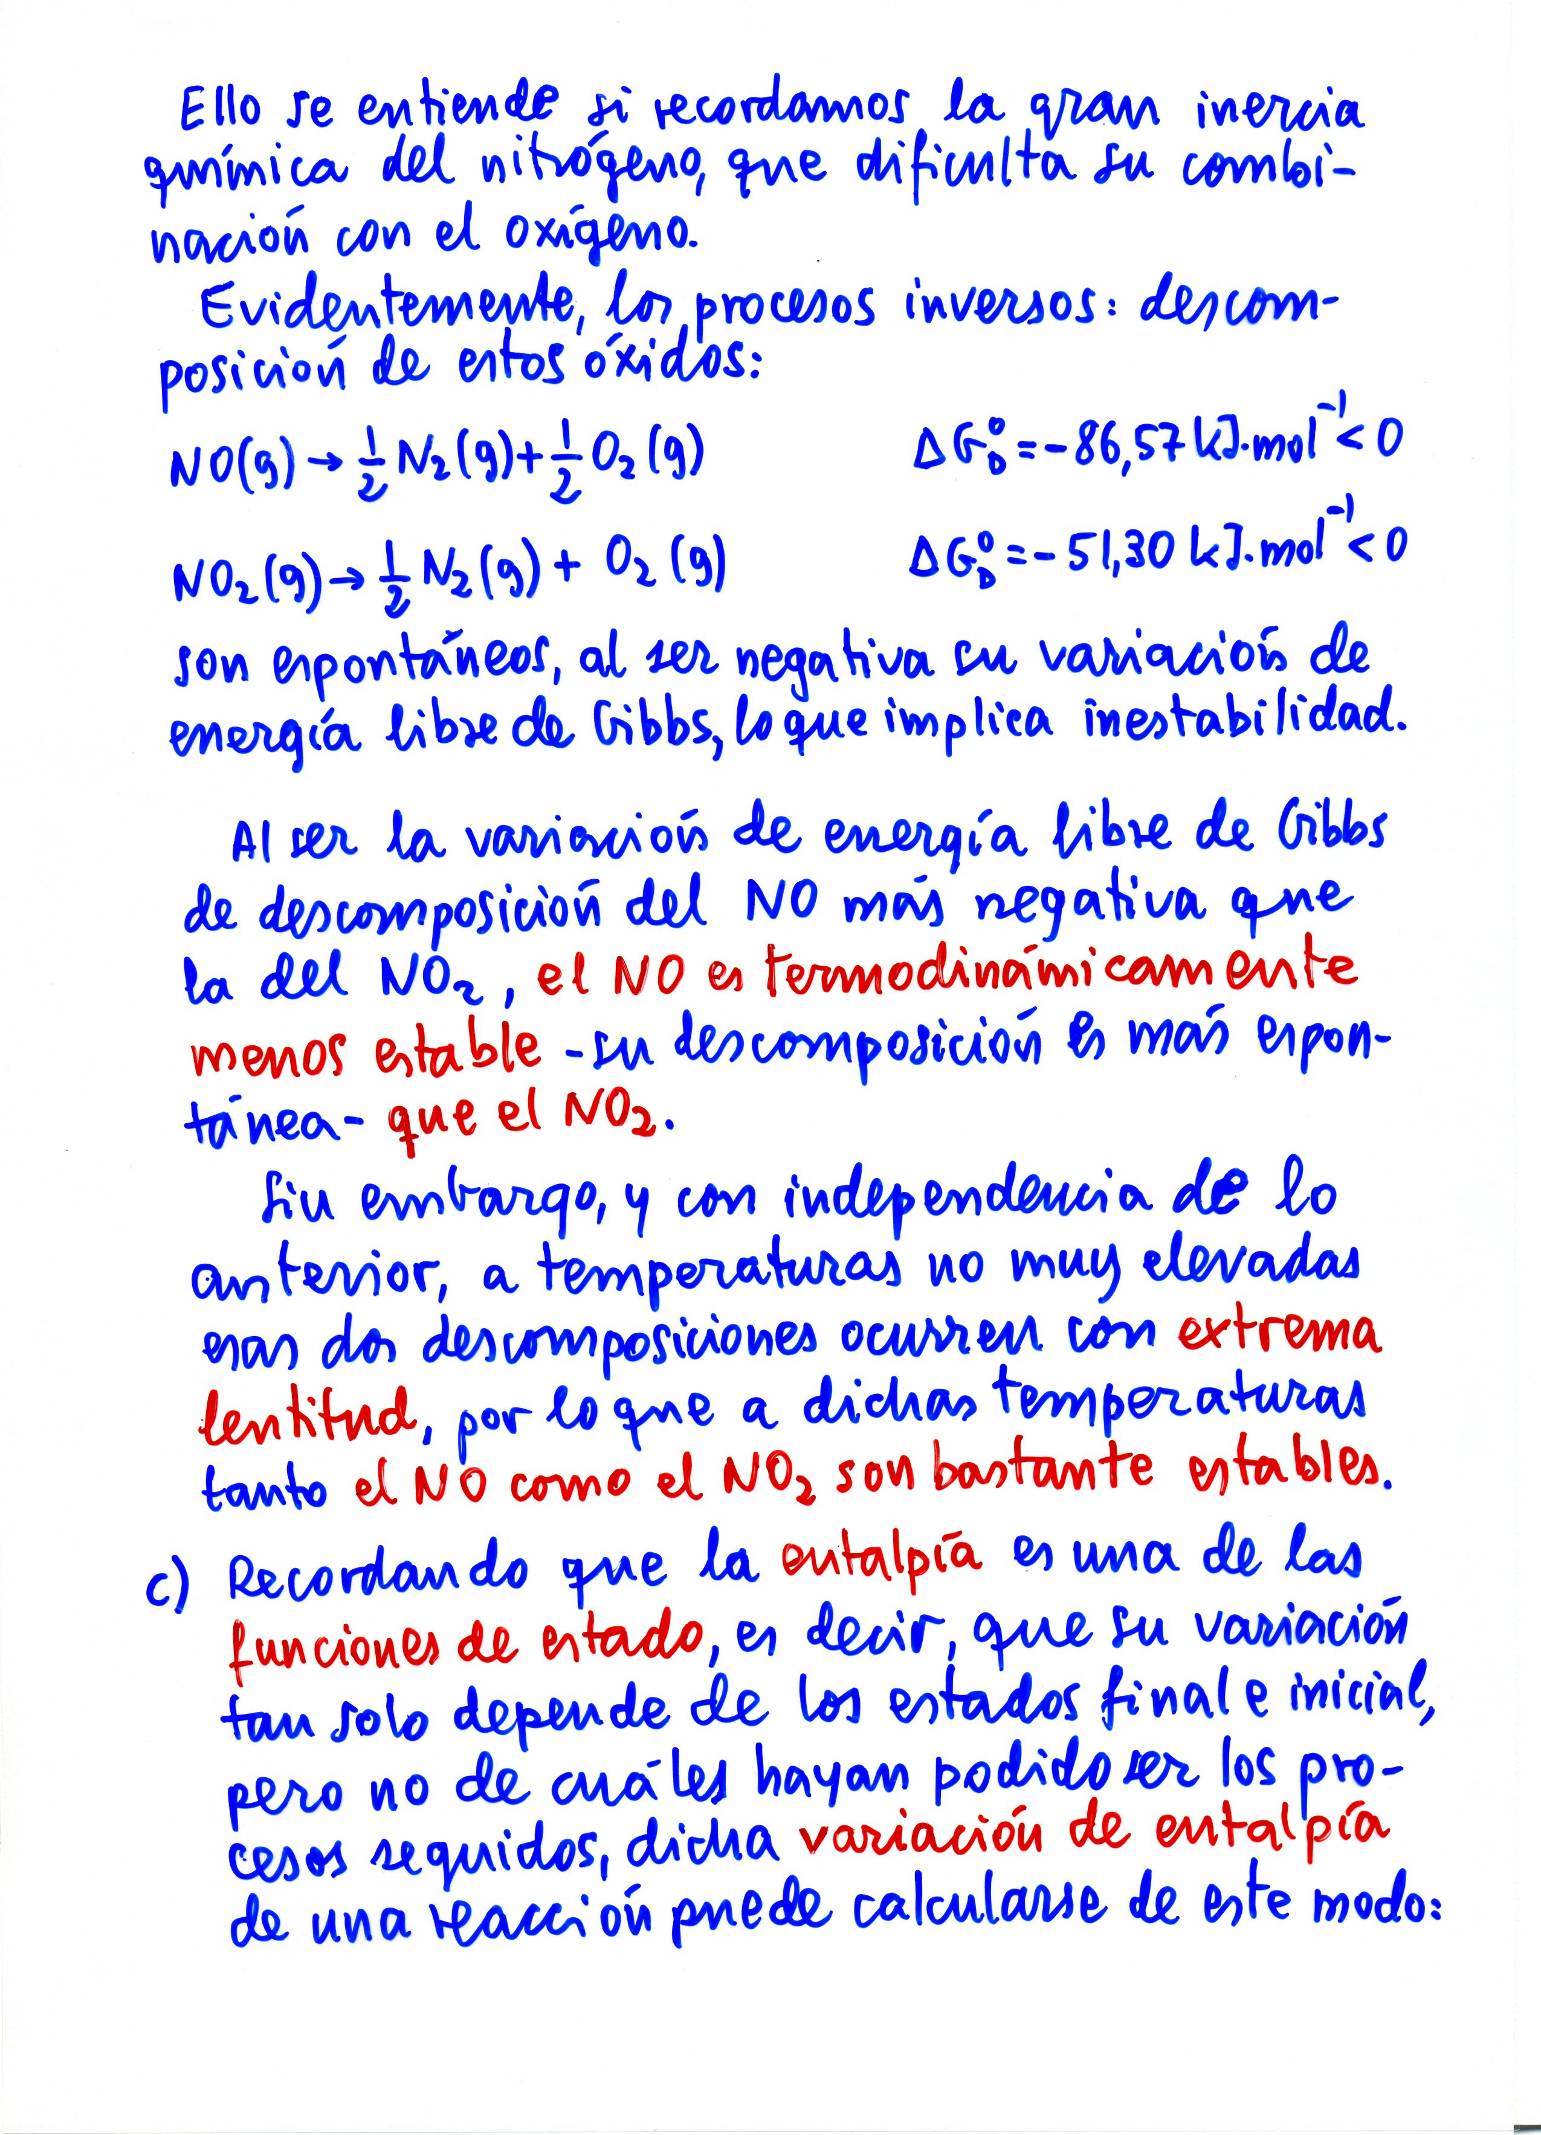 Ello se entiende si recordamos la gran inercia
química del nitrógeno, que dificulta su combi-
nación con el oxígeno.
Evidentemente, los procesos inversos: descom-
posición de estos óxidos:
NO(g) → 1/2 N₂(g) + 1/2 O₂(g) ΔG°_D = -86,57 kJ·mol⁻¹ < 0
NO₂(g) → 1/2 N₂(g) + O₂(g) ΔG°_D = -51,30 kJ·mol⁻¹ < 0
son espontáneos, al ser negativa su variación de
energía libre de Gibbs, lo que implica inestabilidad.
Al ser la variación de energía libre de Gibbs
de descomposición del NO más negativa que
la del NO₂, el NO es termodinámicamente
menos estable -su descomposición es más espon-
tánea- que el NO₂.
Sin embargo, y con independencia de lo
anterior, a temperaturas no muy elevadas
esas dos descomposiciones ocurren con extrema
lentitud, por lo que a dichas temperaturas
tanto el NO como el NO₂ son bastante estables.
c) Recordando que la entalpía es una de las
funciones de estado, es decir, que su variación
tan solo depende de los estados final e inicial,
pero no de cuáles hayan podido ser los pro-
cesos seguidos, dicha variación de entalpía
de una reacción puede calcularse de este modo: